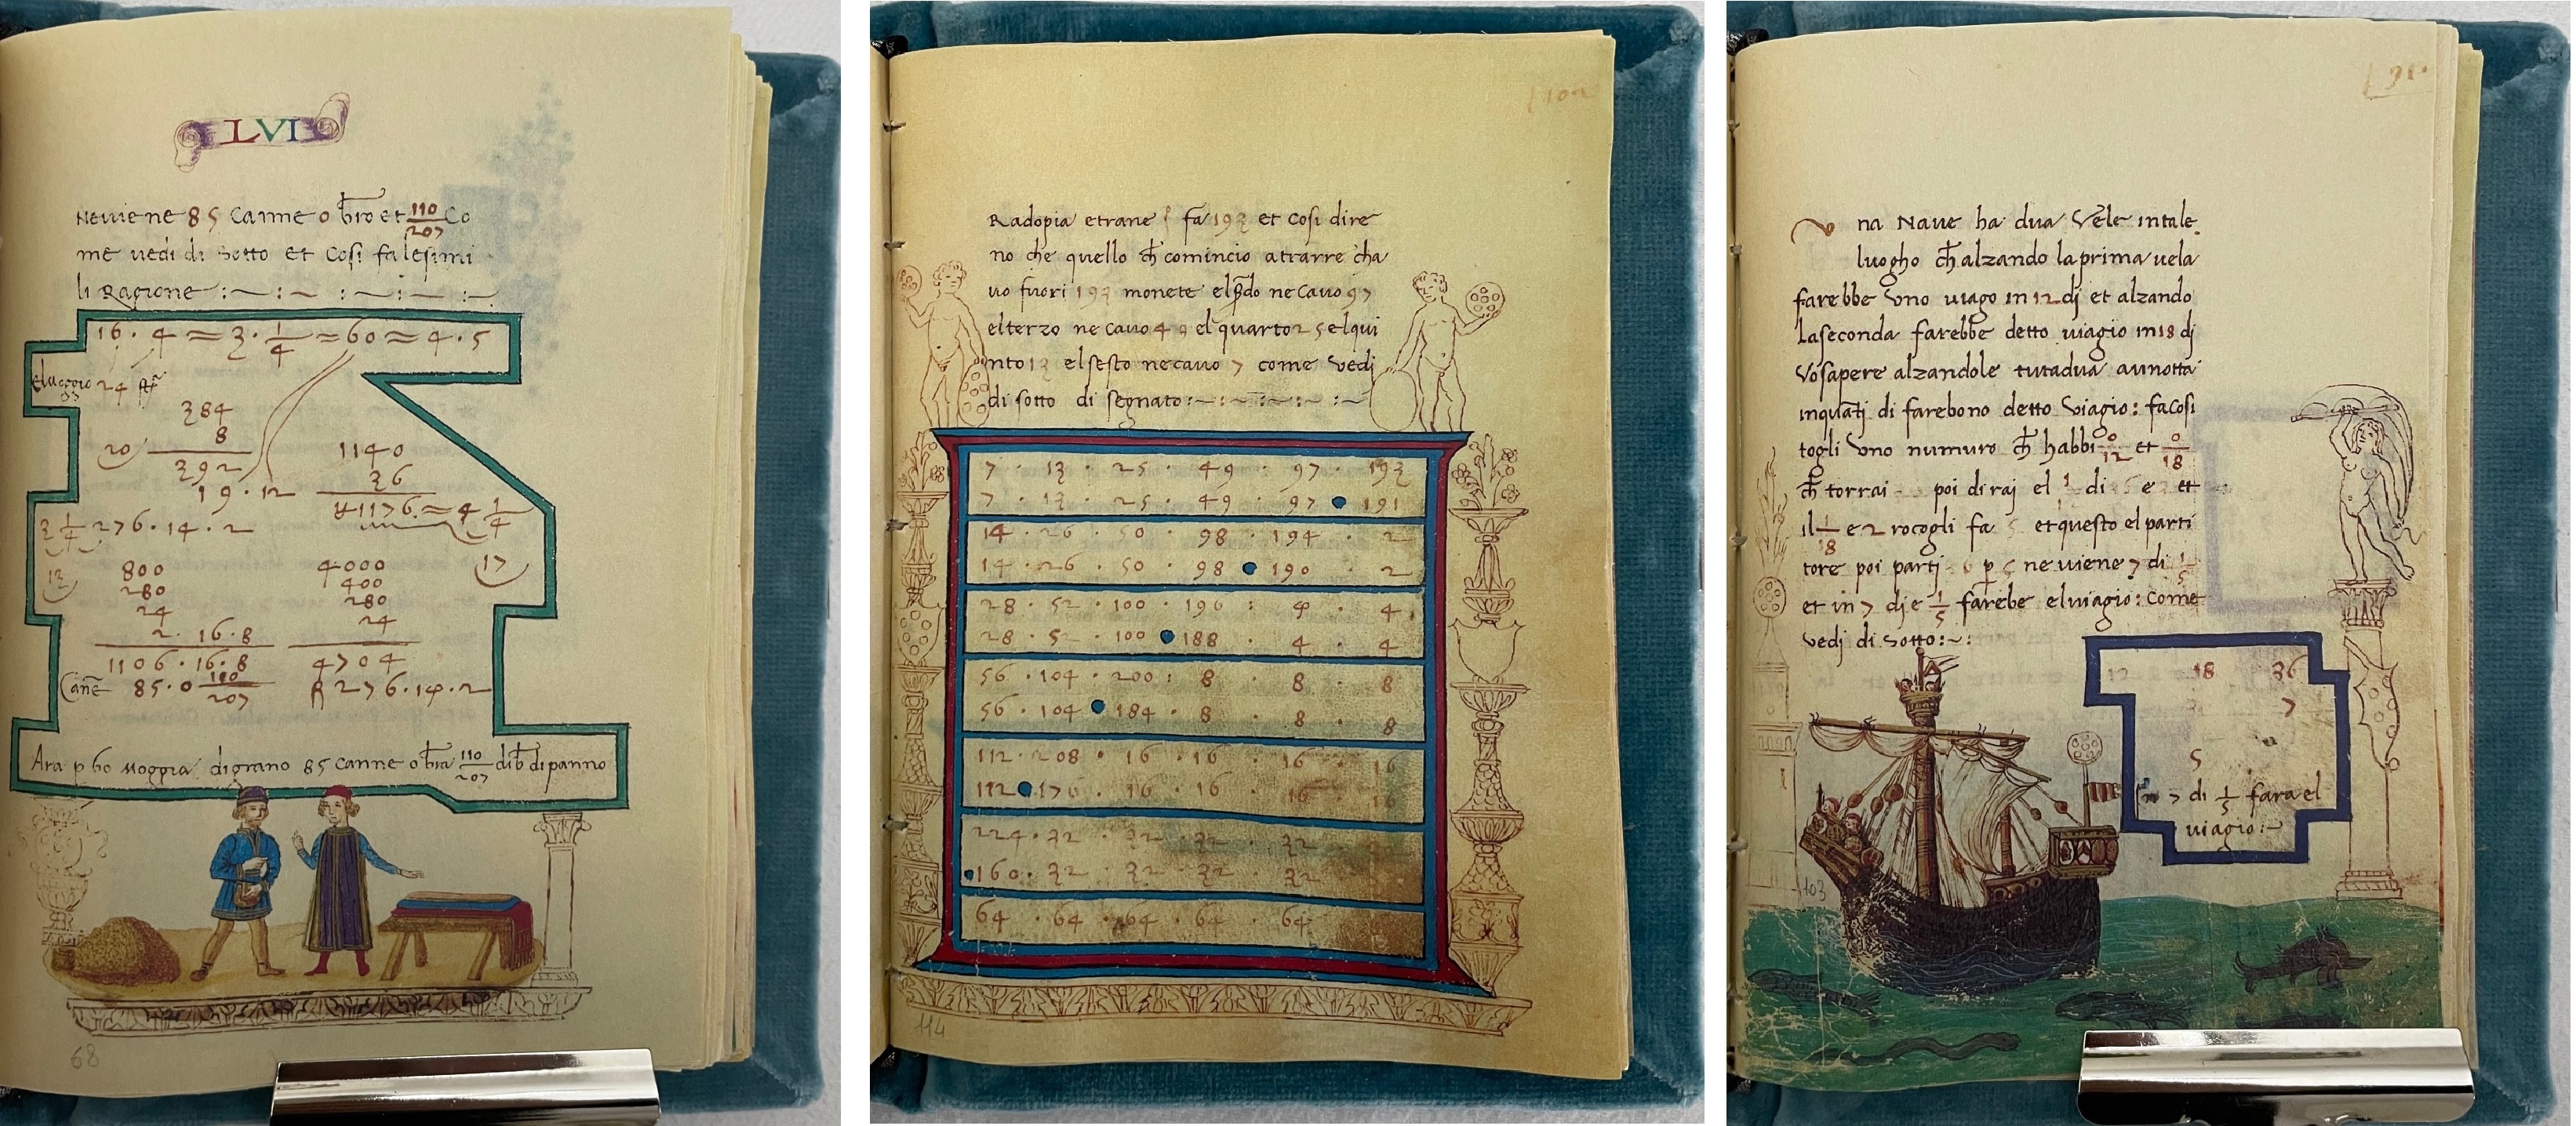 LVI
Neviene 85 Canne o br̄o et 110/207 Co
me vedi di Sotto et Cosi fa lesimi
li Ragione :~ : ~ : ~ : ~ :~
16 · 4 = 3 · 1/4 = 60 = 4 · 5
24
384
8
20
392
19 · 12
1140
36
1176 = 4 1/4
3 1/4 276 · 14 · 2
13
17
800
280
24
2 · 16 · 8
1106 · 16 · 8
Canē 85 · 0 110/207
4000
400
280
24
4704
276 · 14 · 2
Ara p 60 Moggia di grano 85 canne o br̄a 110/207 di b di panno
68
Radopia etrane fa 193 et Cosi dire
no che quello ch̄ comincio atrarre cha
vo fuori 193 monete el ne cavo 97
elterzo ne cavo 49 el quarto 25 elqui
nto 13 elsesto necavo 7 come Vedi
di sotto di segnato :~:~:~:~:~
7 · 13 · 25 · 49 · 97 · 193
7 · 13 · 25 · 49 · 97 191
14 · 26 · 50 · 98 · 194 · 2
14 · 26 · 50 · 98 190 · 2
28 · 52 · 100 · 196 : 4 · 4
28 · 52 · 100 188 · 4 · 4
56 · 104 · 200 : 8 · 8 · 8
56 · 104 184 · 8 · 8 · 8
112 · 208 · 16 · 16 · 16 · 16
112 176 · 16 · 16 · 16 · 16
224 · 32 · 32 · 32 · 32
160 · 32 · 32 · 32 · 32
64 · 64 · 64 · 64 · 64
114
na Nave ha dua Vele intale
luogho ch̄ alzando la prima vela
farebbe Vno viago in 12 dj et alzando
La seconda farebbe detto viagio in 18 dj
Vo sapere alzandole tutadua aunotta
inquātj di farebono detto Viagio : fa cosi
togli Vno numuro ch̄ habbi 0/12 et 0/18
ch̄ torrai poi di raj el di e et
il 1/18 e 2 rocogli fa 5 et questo el parti
tore poi parti p̄ 5 ne viene 7 di 1/5
et in 7 dj e 1/5 farebe elviagio : Come
vedj di Sotto :~:
12 18 36
7
5
7 di 1/5 fara el
viagio :~
103